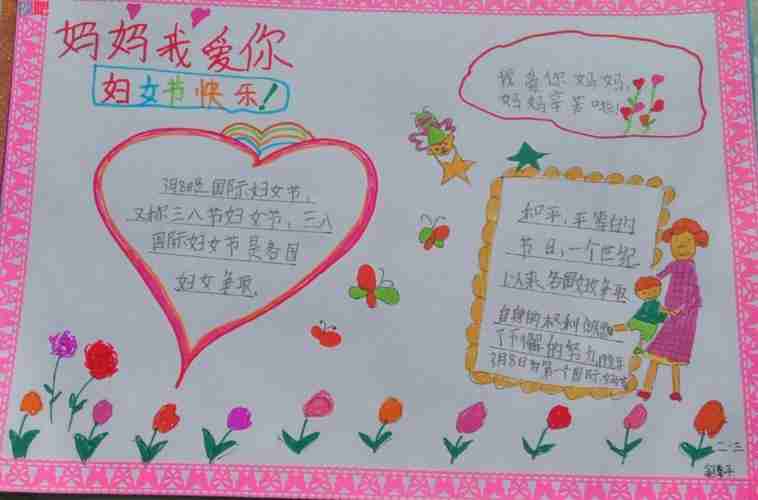 妈妈我爱你
妇女节快乐!
我爱你妈妈,
妈妈辛苦啦!
3月8号是国际妇女节,
又称三八节妇女节,三八
国际妇女节是各国
妇女争取,
和平,平等的
节日,一个世纪
以来,各国妇女争取
自身的权利做出
了不懈的努力
3月8日为第一个国际妇女
二·三